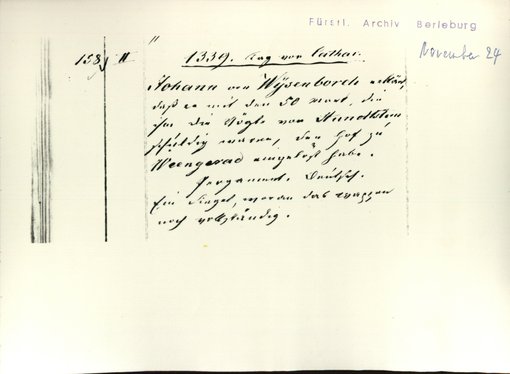 Fürstl. Archiv Berleburg
November 24
158 II
"
1339. Tag vor Cathar.
Johann von Wysenborch erklärt,
daß er mit den 50 Mark, die
ihm die Vögte von Hundstein
schuldig waren, den Hof zu
Weengerad eingelöst habe.
Pergament. Deutsch.
Ein Siegel, woran das Wappen
noch vollständig.